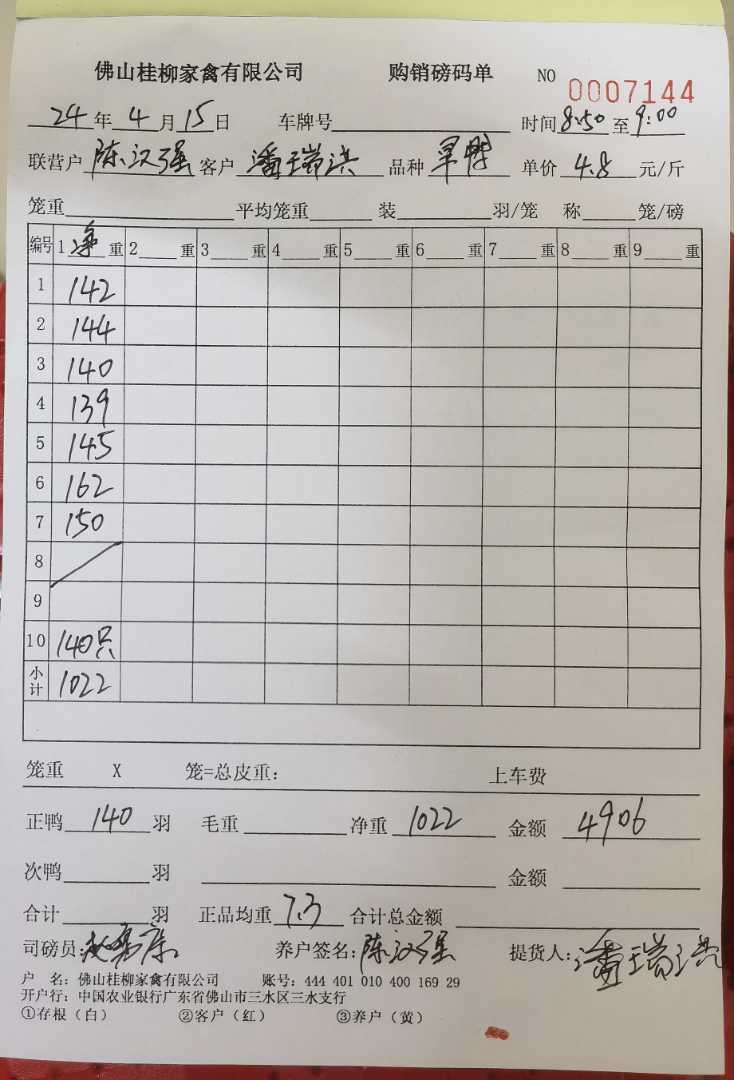 佛山桂柳家禽有限公司 购销磅码单 NO 0007144
24年4月15日 车牌号 时间8:50至9:00
联营户 陈汉强 客户 潘瑞洪 品种 旱鸭 单价 4.8 元/斤
笼重 平均笼重 装 羽/笼 称 笼/磅
编号 1净重 2 重 3 重 4 重 5 重 6 重 7 重 8 重 9 重
1 142
2 144
3 140
4 139
5 145
6 162
7 150
8
9
10 140只
小计 1022
笼重 X 笼=总皮重: 上车费
正鸭 140 羽 毛重 净重 1022 金额 4906
次鸭 羽 金额
合计 羽 正品均重 7.3 合计总金额
司磅员: 养户签名: 陈汉强 提货人: 潘瑞洪
户 名: 佛山桂柳家禽有限公司 账号: 444 401 010 400 169 29
开户行: 中国农业银行广东省佛山市三水区三水支行
①存根（白） ②客户（红） ③养户（黄）